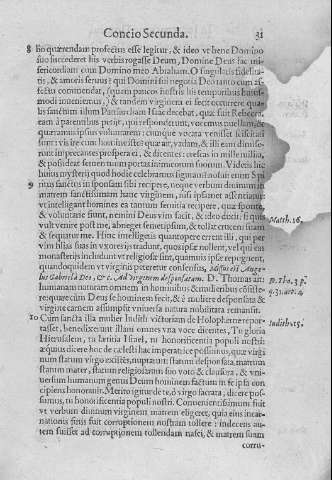 Concio Secunda. 31
8 lio quærendam profectus esse legitur, & ideo ve bene Domino
suo succederet his verbis rogasse Deum, Domine Deus fac mi-
sericordiam cum Domino meo Abraham. O singularis fidelita-
tis, & amoris seruus? qui Domini sui negotia Deo tanto cum af-
fectu commendat, (quam paucos nostris his temporibus huius-
modi inuenimus,) & tandem virginem ei fecit occurrere qua-
lis
eam à parentibus petijt, qui responderunt, vocemus puellam &
quæramus ipsius voluntatem: cumque vocata venisset sciscitati
sunt: vis ire cum homine isto? quæ ait, vadam, & illi eam dimise-
runt imprecantes prospera ei, & dicentes: crescas in mille millia,
& possideat semen tuum portas inimicorum suorum. Videtis
huius mysterij quod hodie celebramus figuram? noluit enim Spi
9 ritus sanctus in sponsam sibi recipere, neque verbum diuinum in
matrem sanctissimam hanc virginem, nisi ipsamet assentiente:
vt intelligant homines ea tantum seruitia recipere, quæ sponte,
& voluntarie fiunt, nemini Deus vim facit, & ideo dicit, si quis
vult venire post me, abneget semetipsum, & tollat crucem suam Matth. 16.
& sequatur me. Hinc intelligetis quantopere errent illi, qui per
vim filias suas in vxores tradunt, quos ipsæ nollent, vel qui eas
monasterijs includunt vt religiosæ sint, quamuis ipsæ repugnent,
quandoquidem vt virginis peteretur consensus, Missus est Ange-
lus Gabriel à Deo, &c. Ad virginem desponsatam. D. Thomas ait: D. Tho. 3 p.
humanam naturam omnem in hominibus & mulieribus consiste- q. 31. art. 4
re: quare cum Deus se hominem fecit, & è muliere desponsata &
virgine carnem assumpsit vniuersa natura nobilitata remansit.
10 Cum sancta illa mulier Iudith victoriam de Holopherne repor-
tasset, benedixerunt illam omnes vna voce dicentes, Tu gloria Iudith 15.
Hierusalem, tu lætitia Israel, tu honorificentia populi nostri:
æquius dicere hoc de cælesti hac imperatrice possumus, quæ virgi
num statum virgo extitit, nuptarum statum desponsata, matrum
statum mater, statum religiosarum suo voto & clausura, & vni-
uersum humanum genus Deum hominem factum in se ipsa con
cipiens honorauit. Merito igitur de te, ô virgo sacrata, dicere pos-
sumus, tu honorificentia populi nostri. Conuenientissimum fuit
vt verbum diuinum virginem matrem eligeret, quia eius incar-
nationis finis fuit corruptionem nostram tollere: indecens au-
tem fuisset ad corruptionem tollendam nasci, & matrem suam
corru-